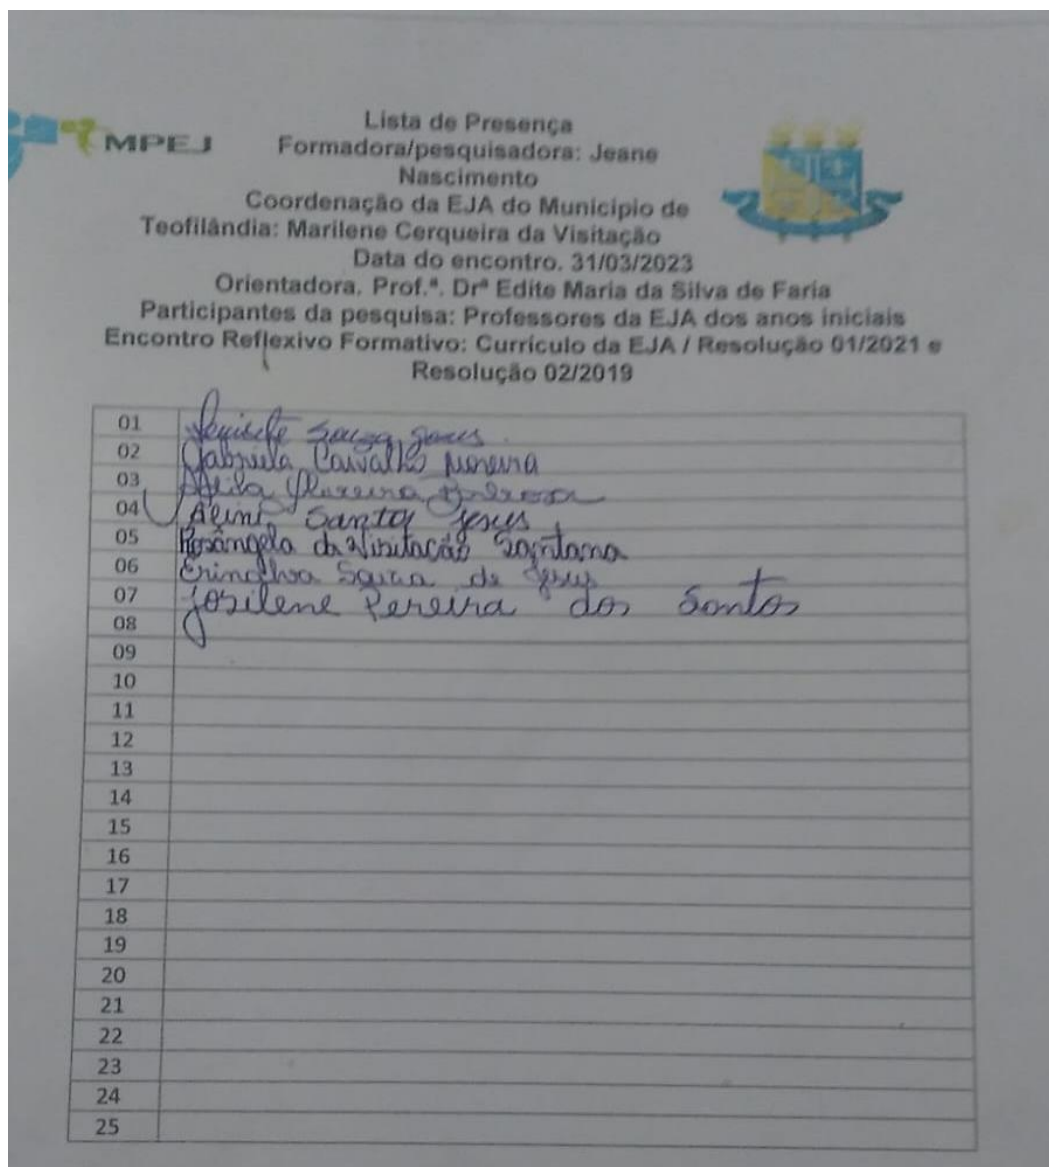 MPEJ
Lista de Presença
Formadora/pesquisadora: Jeane
Nascimento
Coordenação da EJA do Município de
Teofilândia: Marilene Cerqueira da Visitação
Data do encontro. 31/03/2023
Orientadora. Prof.ª. Drª Edite Maria da Silva de Faria
Participantes da pesquisa: Professores da EJA dos anos iniciais
Encontro Reflexivo Formativo: Currículo da EJA / Resolução 01/2021 e
Resolução 02/2019
01 Souza Jesus
02 Gabriela Carvalho Moreira
03
04 Santos Jesus
05 Rosângela da Visitação Santana
06 Erinalva Souza de Jesus
07 Josilene Pereira dos Santos
08
09
10
11
12
13
14
15
16
17
18
19
20
21
22
23
24
25